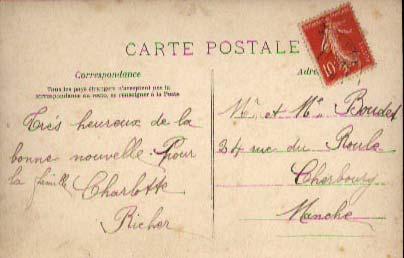 CARTE POSTALE
Correspondance
Tous les pays étrangers n'acceptent pas la
correspondance au recto, se renseigner à la Poste
Adre
10
Très heureux de la
bonne nouvelle. Pour
la famille Charlotte
Richer
Mr et Me Boudet
34 rue du Roule
Cherbourg
Manche